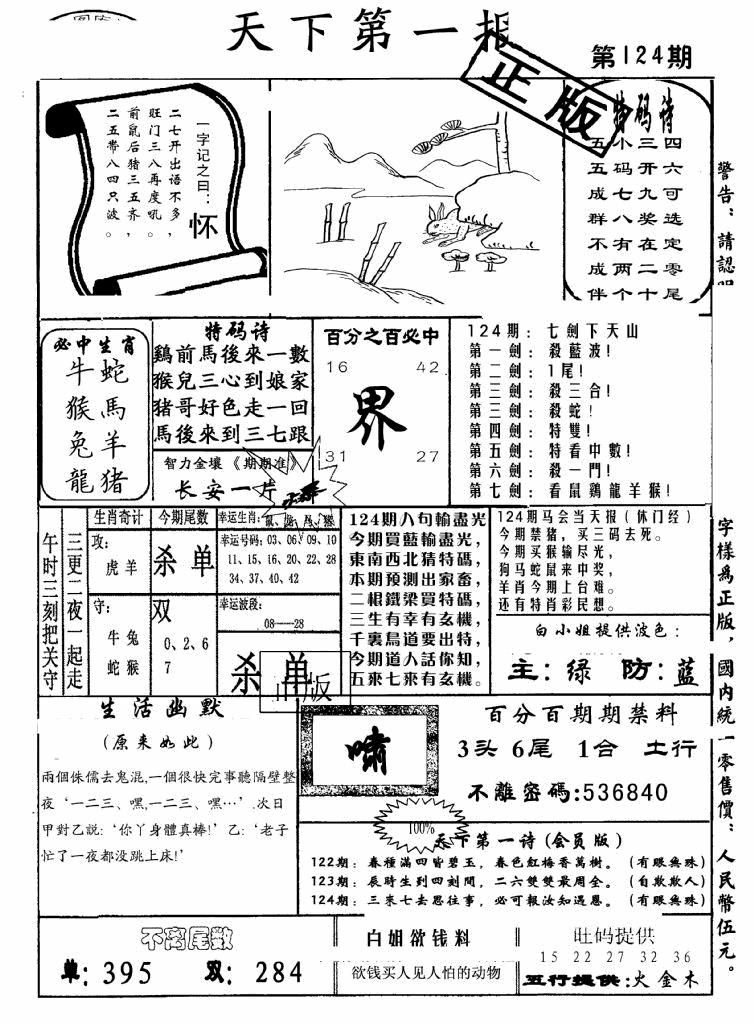 天下第一报
第124期
正版
一字记之曰：
怀
二七开出语不多，
旺门三八再度吼。
前鼠后猪三五齐，
二五带八四只波。
特码诗
五五成群不成伴
小码七八有两个
三开九奖在二十
四六可选定零尾
警告：請認明
字樣爲正版，國内統一零售價：人民幣伍元。
必中生肖
牛蛇
猴馬
兔羊
龍猪
特码诗
鷄前馬後來一數
猴兒三心到娘家
猪哥好色走一回
馬後來到三七跟
智力金壤《期期准》
长安一片
百分之百必中
16 42
界
31 27
124期：七劍下天山
第一劍：殺藍波！
第二劍：1尾！
第三劍：殺三合！
第三劍：殺蛇！
第四劍：特雙！
第五劍：特看中數！
第六劍：殺一門！
第七劍：看鼠鷄龍羊猴！
午时三刻把关守
三更二夜一起走
生肖奇计
攻：
虎羊
守：
牛兔
蛇猴
今期尾数
杀单
双
0、2、6
7
幸运生肖：
幸运号码：03、06、09、10
11、15、16、20、22、28
34、37、40、42
幸运波段：
08——28
杀单
正版
124期八句輸盡光
今期買藍輸盡光，
東南西北猜特碼，
本期預測出家畜，
二棍鐵梁買特碼，
三生有幸有玄機，
千裏鳥道要出特，
今期道人話你知，
五來七來有玄機。
124期马会当天报（休门经）
今期禁猪，买三码去死。
今期买猴输尽光，
狗马蛇鼠来中奖，
羊肖今期上台难。
还有特肖彩民想。
白小姐提供波色：
主：绿 防：蓝
生活幽默
（原来如此）
兩個侏儒去鬼混,一個很快完事聽隔壁整
夜‘一二三、嘿,一二三、嘿…’.次日
甲對乙説:‘你丫身體真棒!’乙:‘老子
忙了一夜都没跳上床!’
嘯
百分百期期禁料
3头 6尾 1合 土行
不離密碼:536840
100%
天下第一诗(会员版)
122期：春種滿四皆碧玉，春色紅梅香萬樹。（有眼無珠）
123期：辰時生到四刻間，二六雙雙最周全。（自欺欺人）
124期：三來七去思往事，必可報汝知遇恩。（有眼無珠）
不离尾数
单：395 双：284
白姐欲钱料
欲钱买人见人怕的动物
旺码提供
15 22 27 32 36
五行提供:火金木